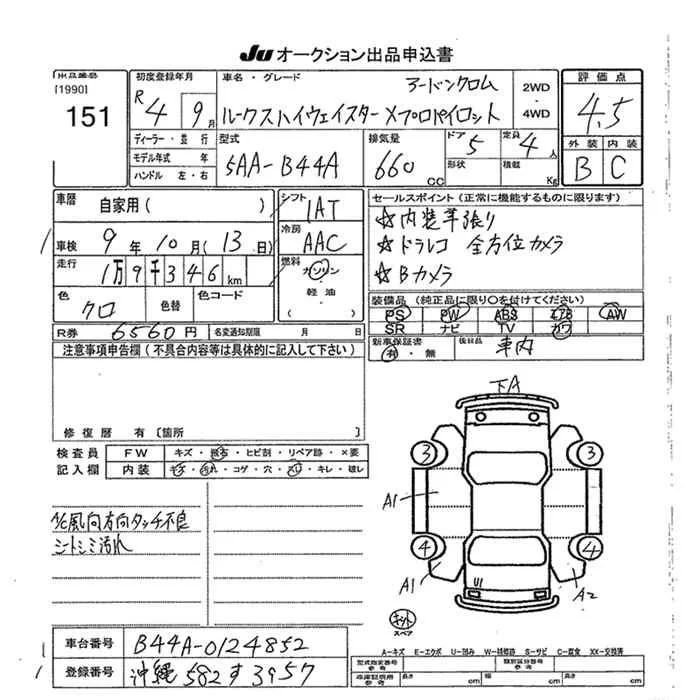 JU オークション出品申込書
出品番号
[1990]
151
初度登録年月
R 4 年 9月
ディーラー・並行
モデル年式 年
ハンドル 左・右
車名・グレード
アーバンクロム
ルークスハイウェイスターXプロパイロット
2WD
・
4WD
型式
5AA-B44A
排気量
660 CC
ドア
5
形状
定員
4人
積載 Kg
評価点
4.5
外装 内装
B C
車歴
自家用( )
車検 9年10月(13日)
走行 1万9千346km
色
クロ
色替
色コード
シフト
IAT
冷房
AAC
燃料
ガソリン
・
軽油
( )
セールスポイント(正常に機能するものに限ります)
☆内装革張り
☆ドラレコ 全方位カメラ
☆Bカメラ
装備品(純正品に限り〇を付けてください)
PS PW ABS エアB AW
SR ナビ TV カワ
R券 6560円 名変通知期限 月 日
新車保証書
有・無
後日品 車内
注意事項申告欄(不具合内容等は具体的に記入して下さい)
修復歴 有〔箇所
検査員
記入欄
FW キズ・飛石・ヒビ割・リペア跡・×要
内装 キズ・汚れ・コゲ・穴・スレ・キレ・破レ
A/C風向方向タッチ不良
シートシミ汚れ
下A
3 3
A1
4 4
A1 U1 A2
キット
スペア
A-キズ E-エクボ U-凹み W-補修跡 S-サビ C-腐食 XX-交換済
車台番号 B44A-0124852
登録番号 沖縄 582 す 3957
型式指定番号
参考
類別区分番号
参考
車庫証明用
参考
長さ cm 幅 cm 高さ cm